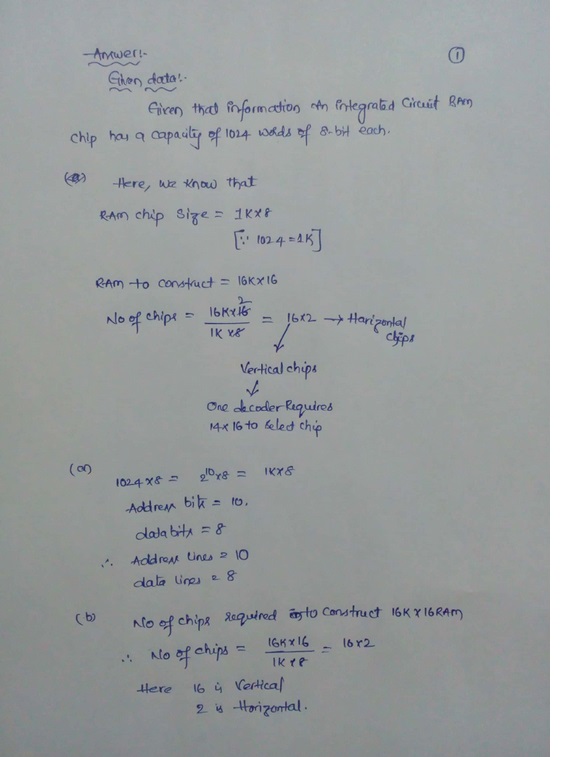 Answer:-
①
Given data:-
Given that information An integrated Circuit RAM
chip has a capacity of 1024 words of 8-bit each.
(a) Here, we know that
RAM chip Size = 1K×8
[∵ 1024 = 1K]
RAM to construct = 16K×16
No of chips = 16K×16 2 / 1K×8 = 16×2 → Harizontal
chips
Vertical chips
One decoder Requires
14×16 to Select chip
(a) 1024×8 = 2^10×8 = 1K×8
Address bits = 10.
data bits = 8
∴ Address Lines = 10
data Lines = 8
(b) No of chips required to Construct 16K×16RAM
∴ No of chips = 16K×16 / 1K×8 = 16×2
Here 16 is Vertical
2 is Horizontal.